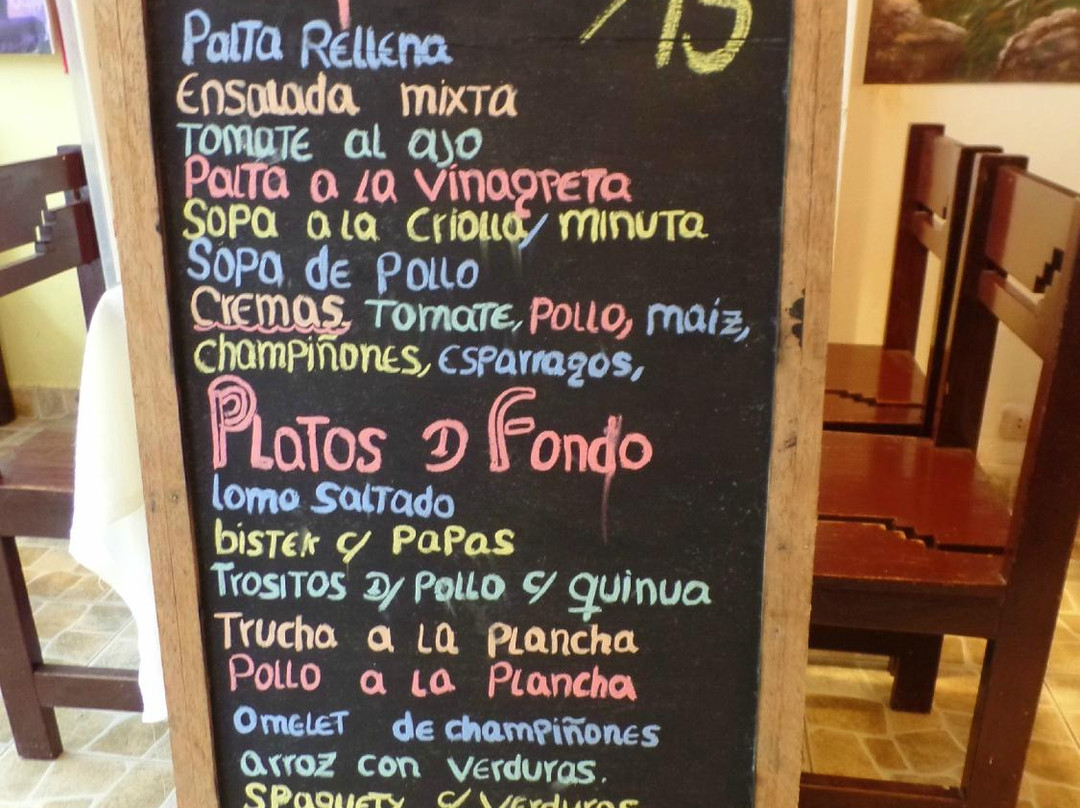 15
Palta Rellena
Ensalada mixta
Tomate al ajo
Palta a la vinagreta
Sopa a la criolla/ minuta
Sopa de Pollo
Cremas, Tomate, Pollo, maíz,
champiñones, esparragos,
Platos D Fondo
lomo Saltado
bistek c/ Papas
Trositos D/ Pollo c/ quinua
Trucha a la Plancha
Pollo a la Plancha
Omelet de champiñones
arroz con verduras.
Spaguety c/ verduras